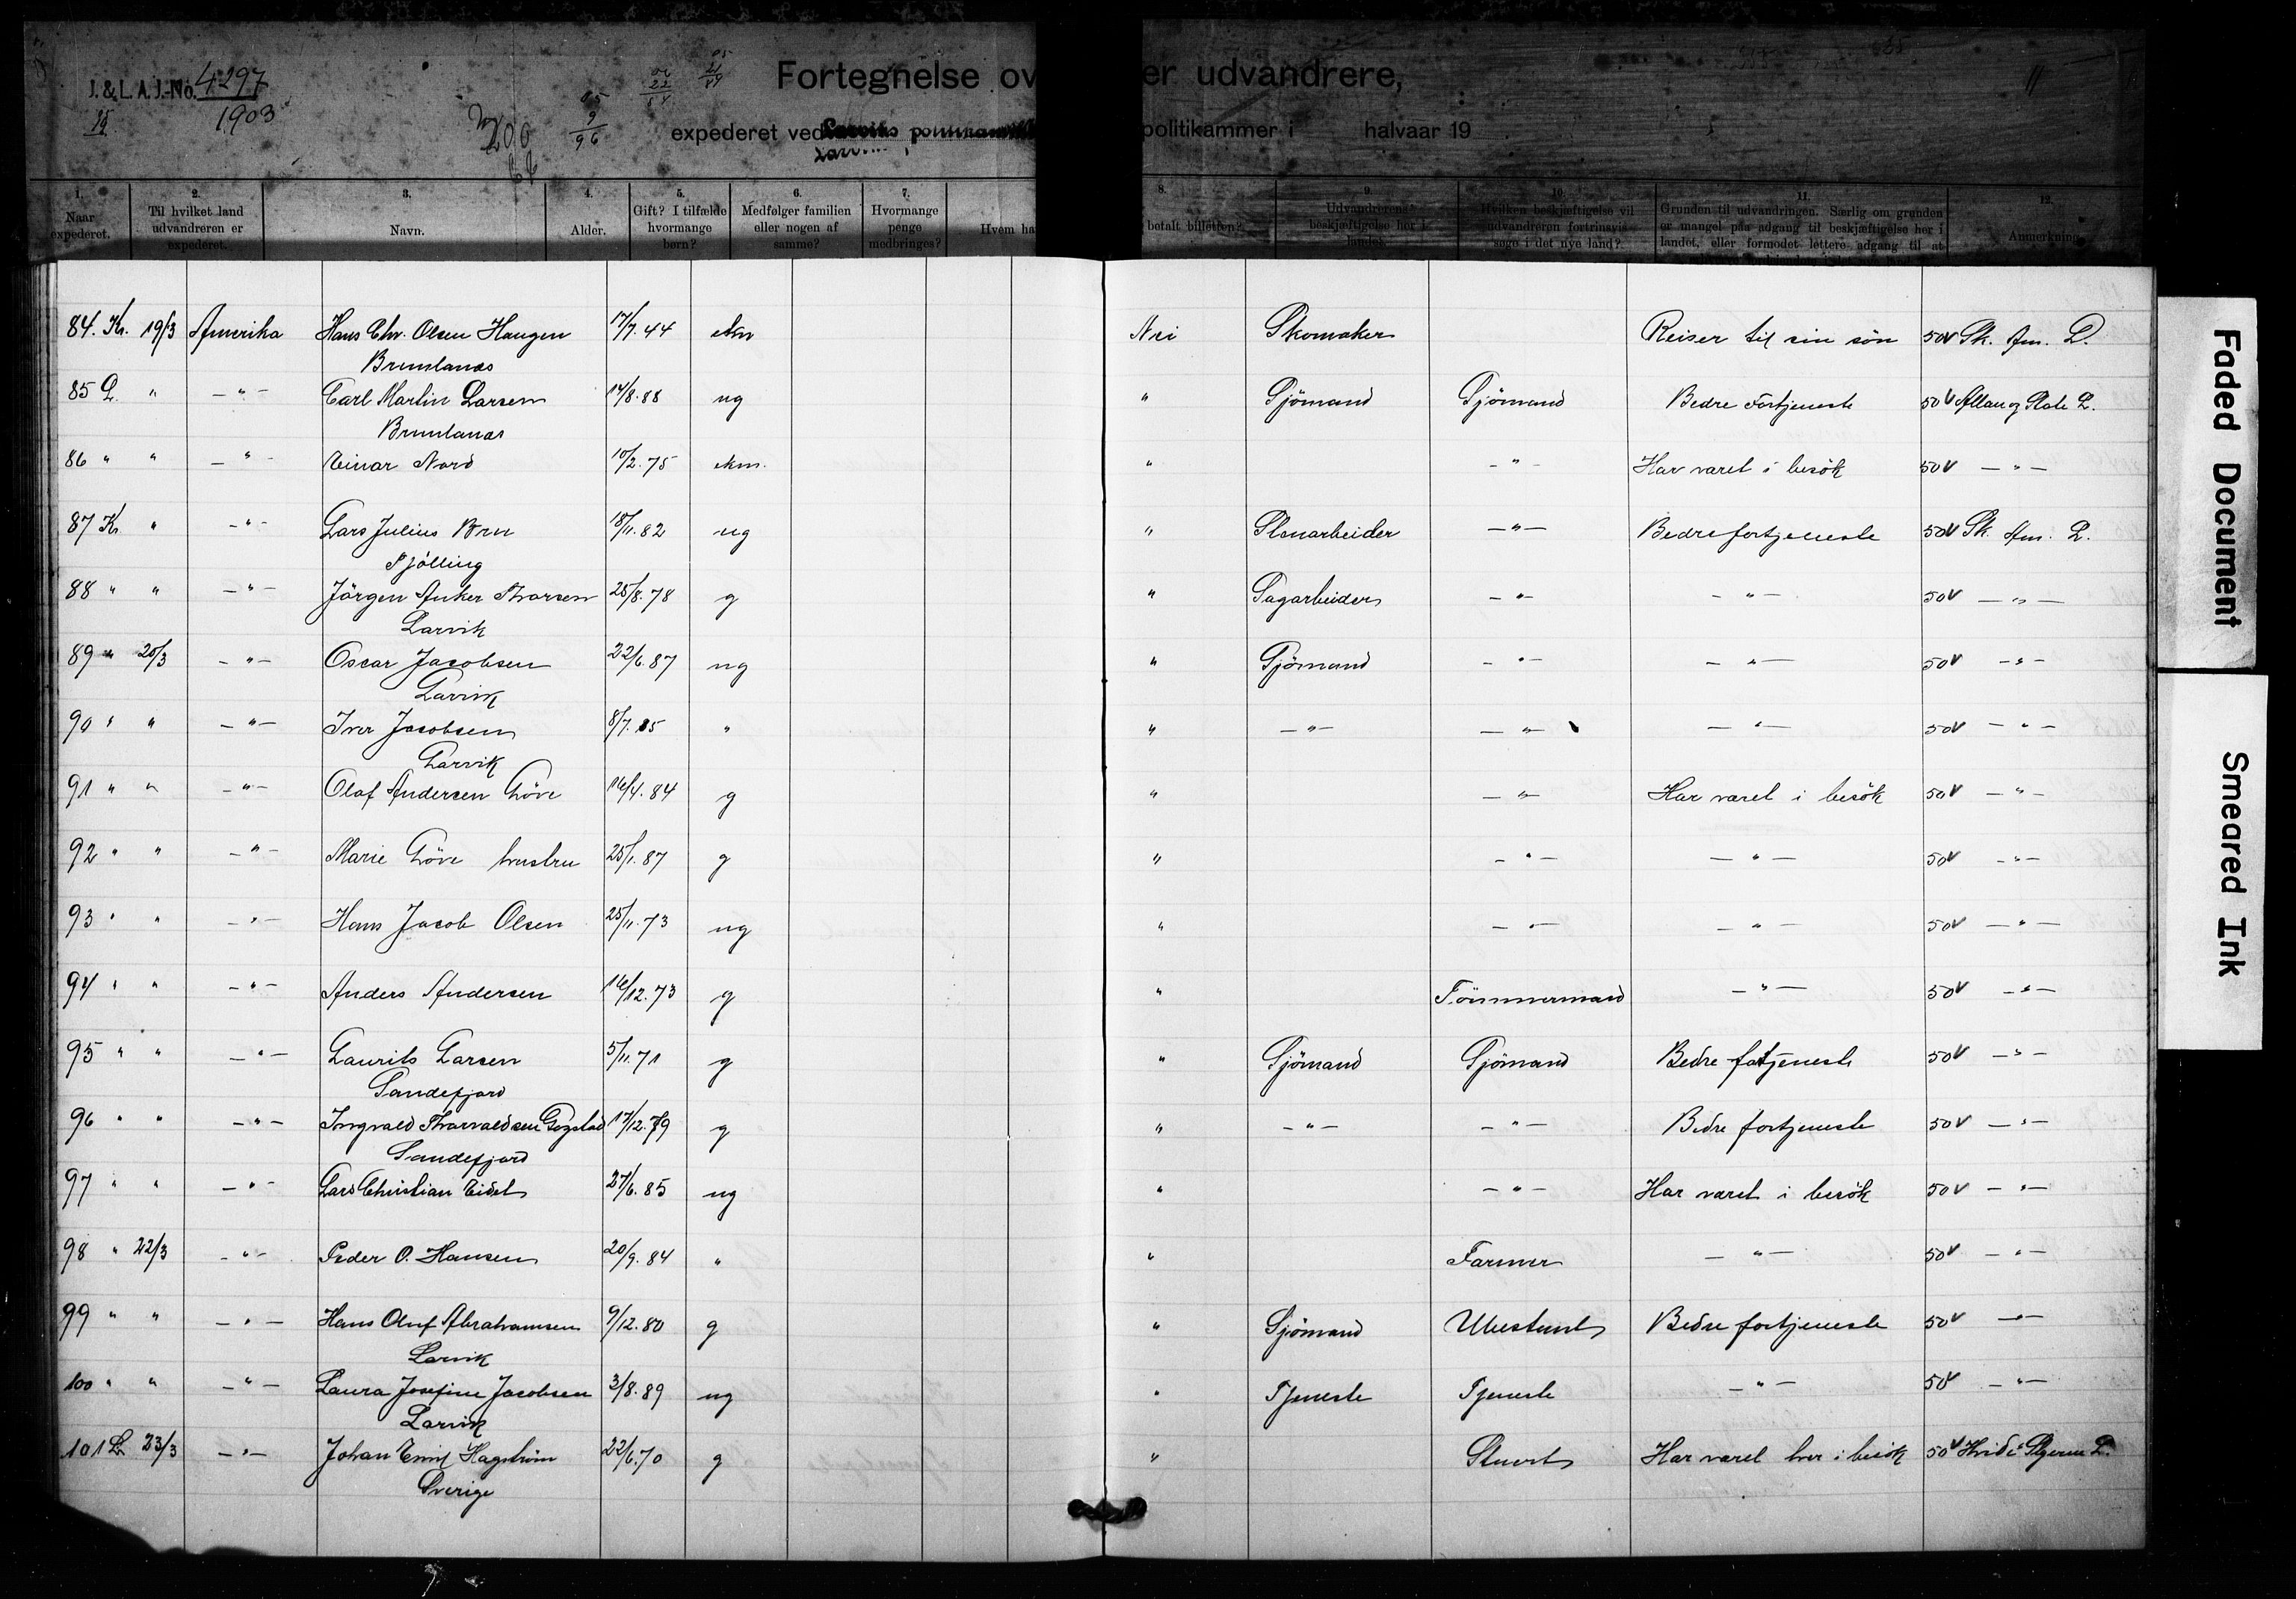 J. & L. A. J.-No. 4297
1903
Fortegnelse ov er udvandrere,
expederet ved Larviks politikammer i halvaar 19
1. 2. 3. 4. 5. 6. 7. 8. 9. 10. 11. 12.
Naar expederet.
Til hvilket land udvandreren er expederet.
Navn.
Alder.
Gift? I tilfælde hvormange børn?
Medfølger familien eller nogen af samme?
Hvormange penge medbringes?
Hvem ha betalt billetten?
Udvandrerens beskjæftigelse her i landet.
Hvilken beskjæftigelse vil udvandreren fortrinsvis søge i det nye land?
Grunden til udvandringen. Særlig om grunden er mangel paa adgang til beskjæftigelse her i landet, eller formodet lettere adgang til at
Anmerkning
84. Kr. 19/3 Amerika Hans Chr. Olsen Haugen 17/7. 44 ekm Nei Skomaker Reiser til sin søn 50V Sk. Am. L.
Brunlanæs
85 L. " — " — Carl Martin Larsen 14/8. 88 ug " Sjömand Sjömand Bedre Fortjeneste 50V Allan og State L.
Brunlanæs
86 " " — " — Einar Nord 10/2. 75 ekm. " — " — Har været i besök 50V — " —
87 Kr " — " — Lars Julius Bru 18/11. 82 ug " Stenarbeider — " — Bedre fortjeneste 50V Sk. Am. L.
Tjölling
88 " " — " — Jörgen Anker Thorsen 25/8. 78 g " Sagarbeider — " — — " — 50V — " —
Larvik
89 " 20/3 — " — Oscar Jacobsen 22/6. 87 ug " Sjömand — " — — " — 50V — " —
Larvik
90 " " — " — Iver Jacobsen 8/7. 85 " " — " — — " — — " — 50V — " —
Larvik
91 " " — " — Olaf Andersen Löve 16/4. 84 g " — " — Har været i besök 50V — " —
92 " " — " — Marie Löve hustru 25/1. 87 g " — " — — " — 50V — " —
93 " " — " — Hans Jacob Olsen 25/11. 73 ug " — " — — " — 50V — " —
94 " " — " — Anders Andersen 16/12. 73 g " Tömmermand — " — 50V — " —
95 " " — " — Laurits Larsen 5/11. 71 g " Sjömand Sjömand Bedre fortjeneste 50V — " —
Sandefjord
96 " " — " — Ingvald Thorvaldsen Gogstad 17/12. 79 g " — " — — " — Bedre fortjeneste 50V — " —
Sandefjord
97 " " — " — Lars Christian Eidet 27/6. 85 ug " — " — Har været i besök 50V — " —
98 " 22/3 — " — Peder O. Hansen 20/9. 84 " " Farmer — " — 50V — " —
99 " " — " — Hans Oluf Abrahamsen 9/12. 80 g " Sjömand Ubestemt Bedre fortjeneste 50V — " —
Larvik
100 " " — " — Laura Josefine Jacobsen 3/8. 89 ug " Tjeneste Tjeneste — " — 50V — " —
Larvik
101 L 23/3 — " — Johan Emil Hagström 22/6. 70 g " Stuert Har været her i besök 50V Hvide Stjerne L.
Sverige
Faded Document
Smeared Ink